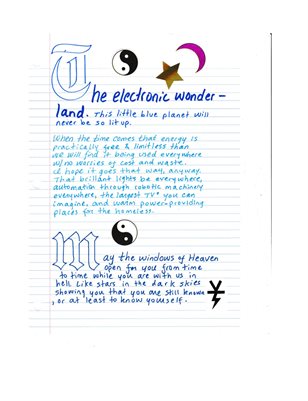 The electronic wonder-
land. This little blue planet will
never be so lit up.
When the time comes that energy is
practically free & limitless than
we will find it being used everywhere
w/no worries of cost and waste.
I hope it goes that way, anyway.
That brilliant lights be everywhere,
automation through robotic machinery
everywhere, the largest TVs you can
imagine, and warm power-providing
places for the homeless.
May the windows of Heaven
open for you from time
to time while you are with us in
hell. Like stars in the dark skies
showing you that you are still known
, or at least to know yourself.